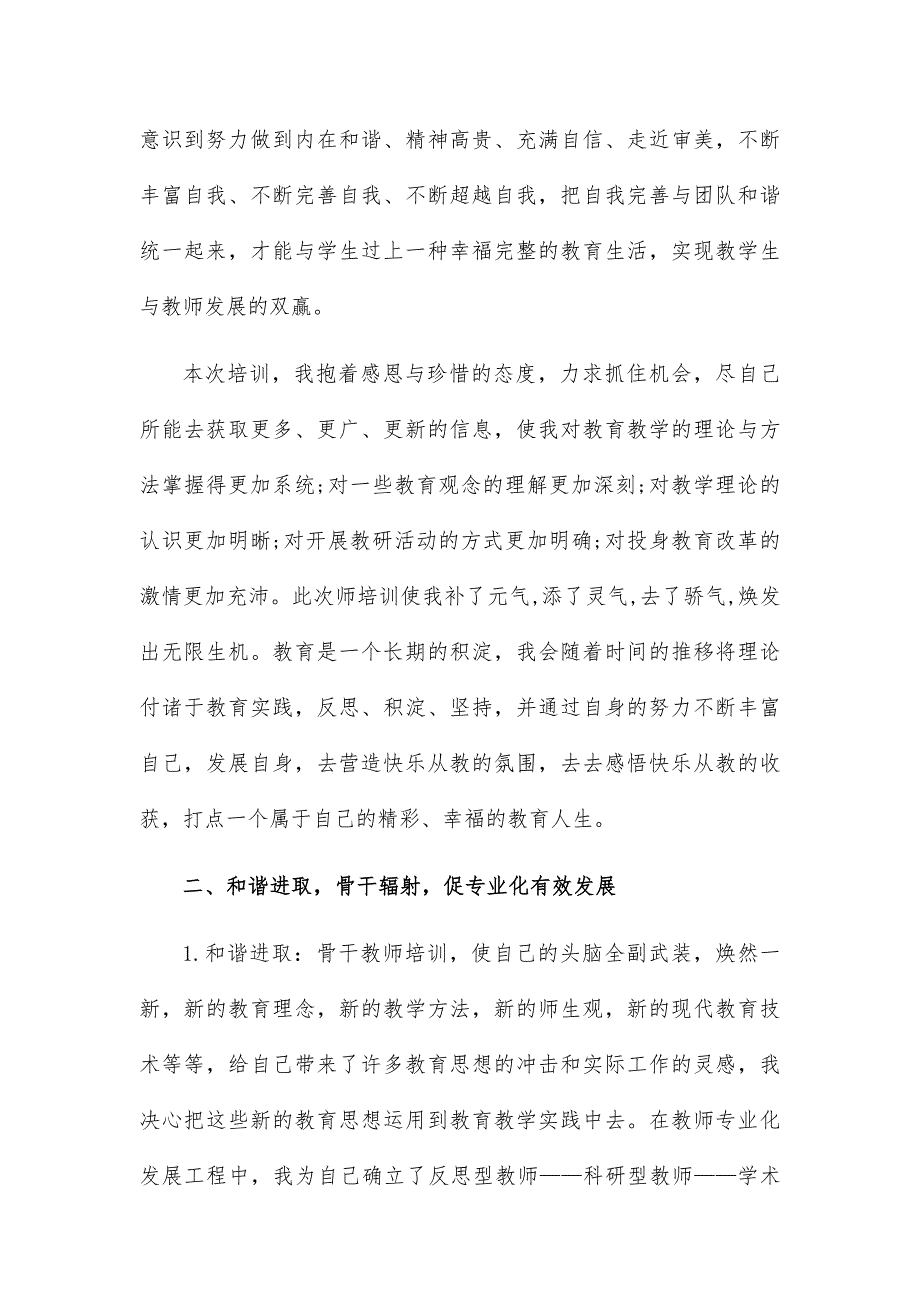 意识到努力做到内在和谐、精神高贵、充满自信、走近审美，不断
丰富自我、不断完善自我、不断超越自我，把自我完善与团队和谐
统一起来，才能与学生过上一种幸福完整的教育生活，实现教学生
与教师发展的双赢。
本次培训，我抱着感恩与珍惜的态度，力求抓住机会，尽自己
所能去获取更多、更广、更新的信息，使我对教育教学的理论与方
法掌握得更加系统;对一些教育观念的理解更加深刻;对教学理论的
认识更加明晰;对开展教研活动的方式更加明确;对投身教育改革的
激情更加充沛。此次师培训使我补了元气,添了灵气,去了骄气,焕发
出无限生机。教育是一个长期的积淀，我会随着时间的推移将理论
付诸于教育实践，反思、积淀、坚持，并通过自身的努力不断丰富
自己，发展自身，去营造快乐从教的氛围，去去感悟快乐从教的收
获，打点一个属于自己的精彩、幸福的教育人生。
二、和谐进取，骨干辐射，促专业化有效发展
1.和谐进取：骨干教师培训，使自己的头脑全副武装，焕然一
新，新的教育理念，新的教学方法，新的师生观，新的现代教育技
术等等，给自己带来了许多教育思想的冲击和实际工作的灵感，我
决心把这些新的教育思想运用到教育教学实践中去。在教师专业化
发展工程中，我为自己确立了反思型教师——科研型教师——学术